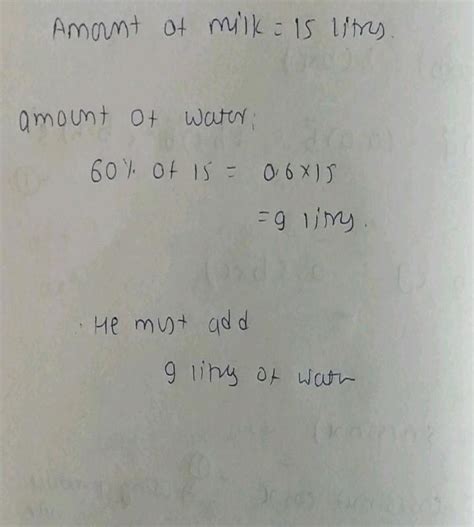 Amount of milk = 15 litres.
amount of water:
60% of 15 = 0.6 x 15
= 9 litres.
He must add
9 litres of water